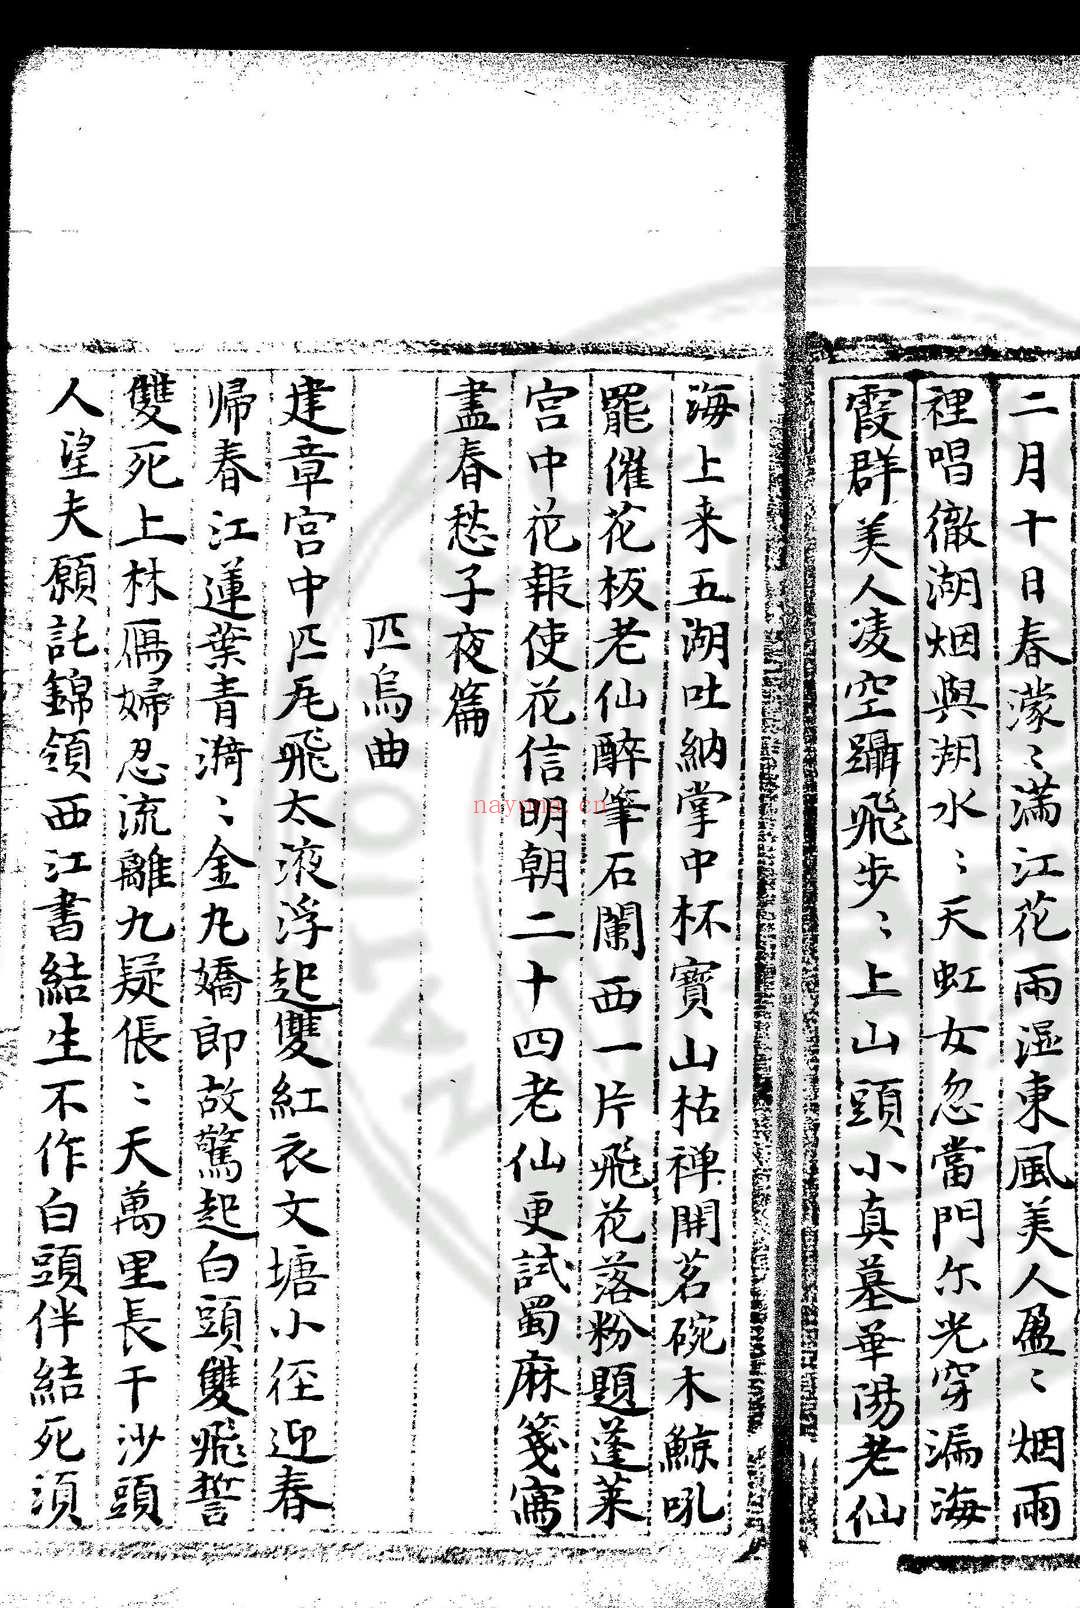 二月十日春濛〻滿江花雨濕東風美人盈〻烟雨
裡唱徹湖烟與湖水〻天虹女忽當門尔光穿漏海
霞群美人凌空躡飛步〻上山頭小真墓華陽老仙
海上来五湖吐納掌中杯寶山枯禅開茗碗木鯨吼
罷催花板老仙醉筆石闌西一片飛花落粉題蓬萊
宫中花報使花信明朝二十四老仙更試蜀麻箋寫
盡春愁子夜篇
匹烏曲
建章宫中匹𠃵飛太液浮起雙紅衣文塘小徑迎春
帰春江蓮葉青漪〻金丸嬌郎故驚起白頭雙飛誓
雙死上林鴈婦忍流離九疑倀〻天萬里長干沙頭
人望夫願託錦領西江書結生不作白頭伴結死須
nayona.cn